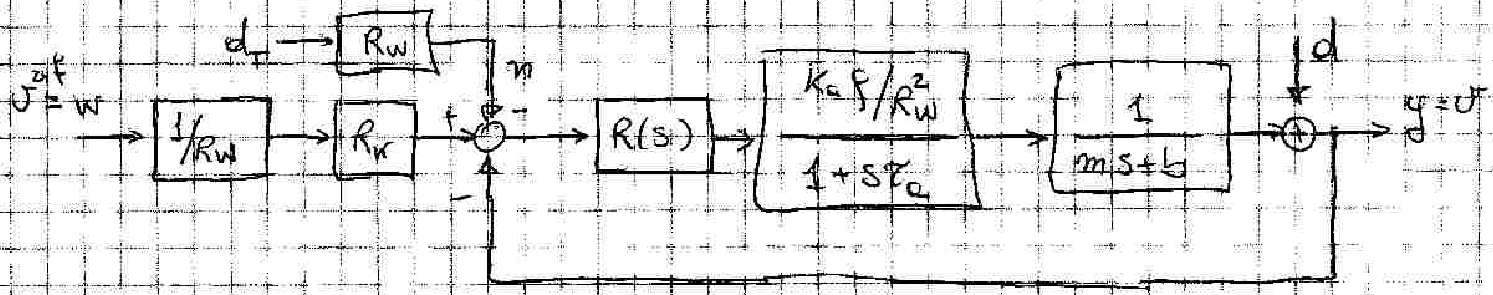 d_T → R_W
n
d
v^rif = w
1/R_W
R_W
+
-
R(s)
K_a ξ/R_W^2
1 + sτ_a
1
ms+b
y=v
-